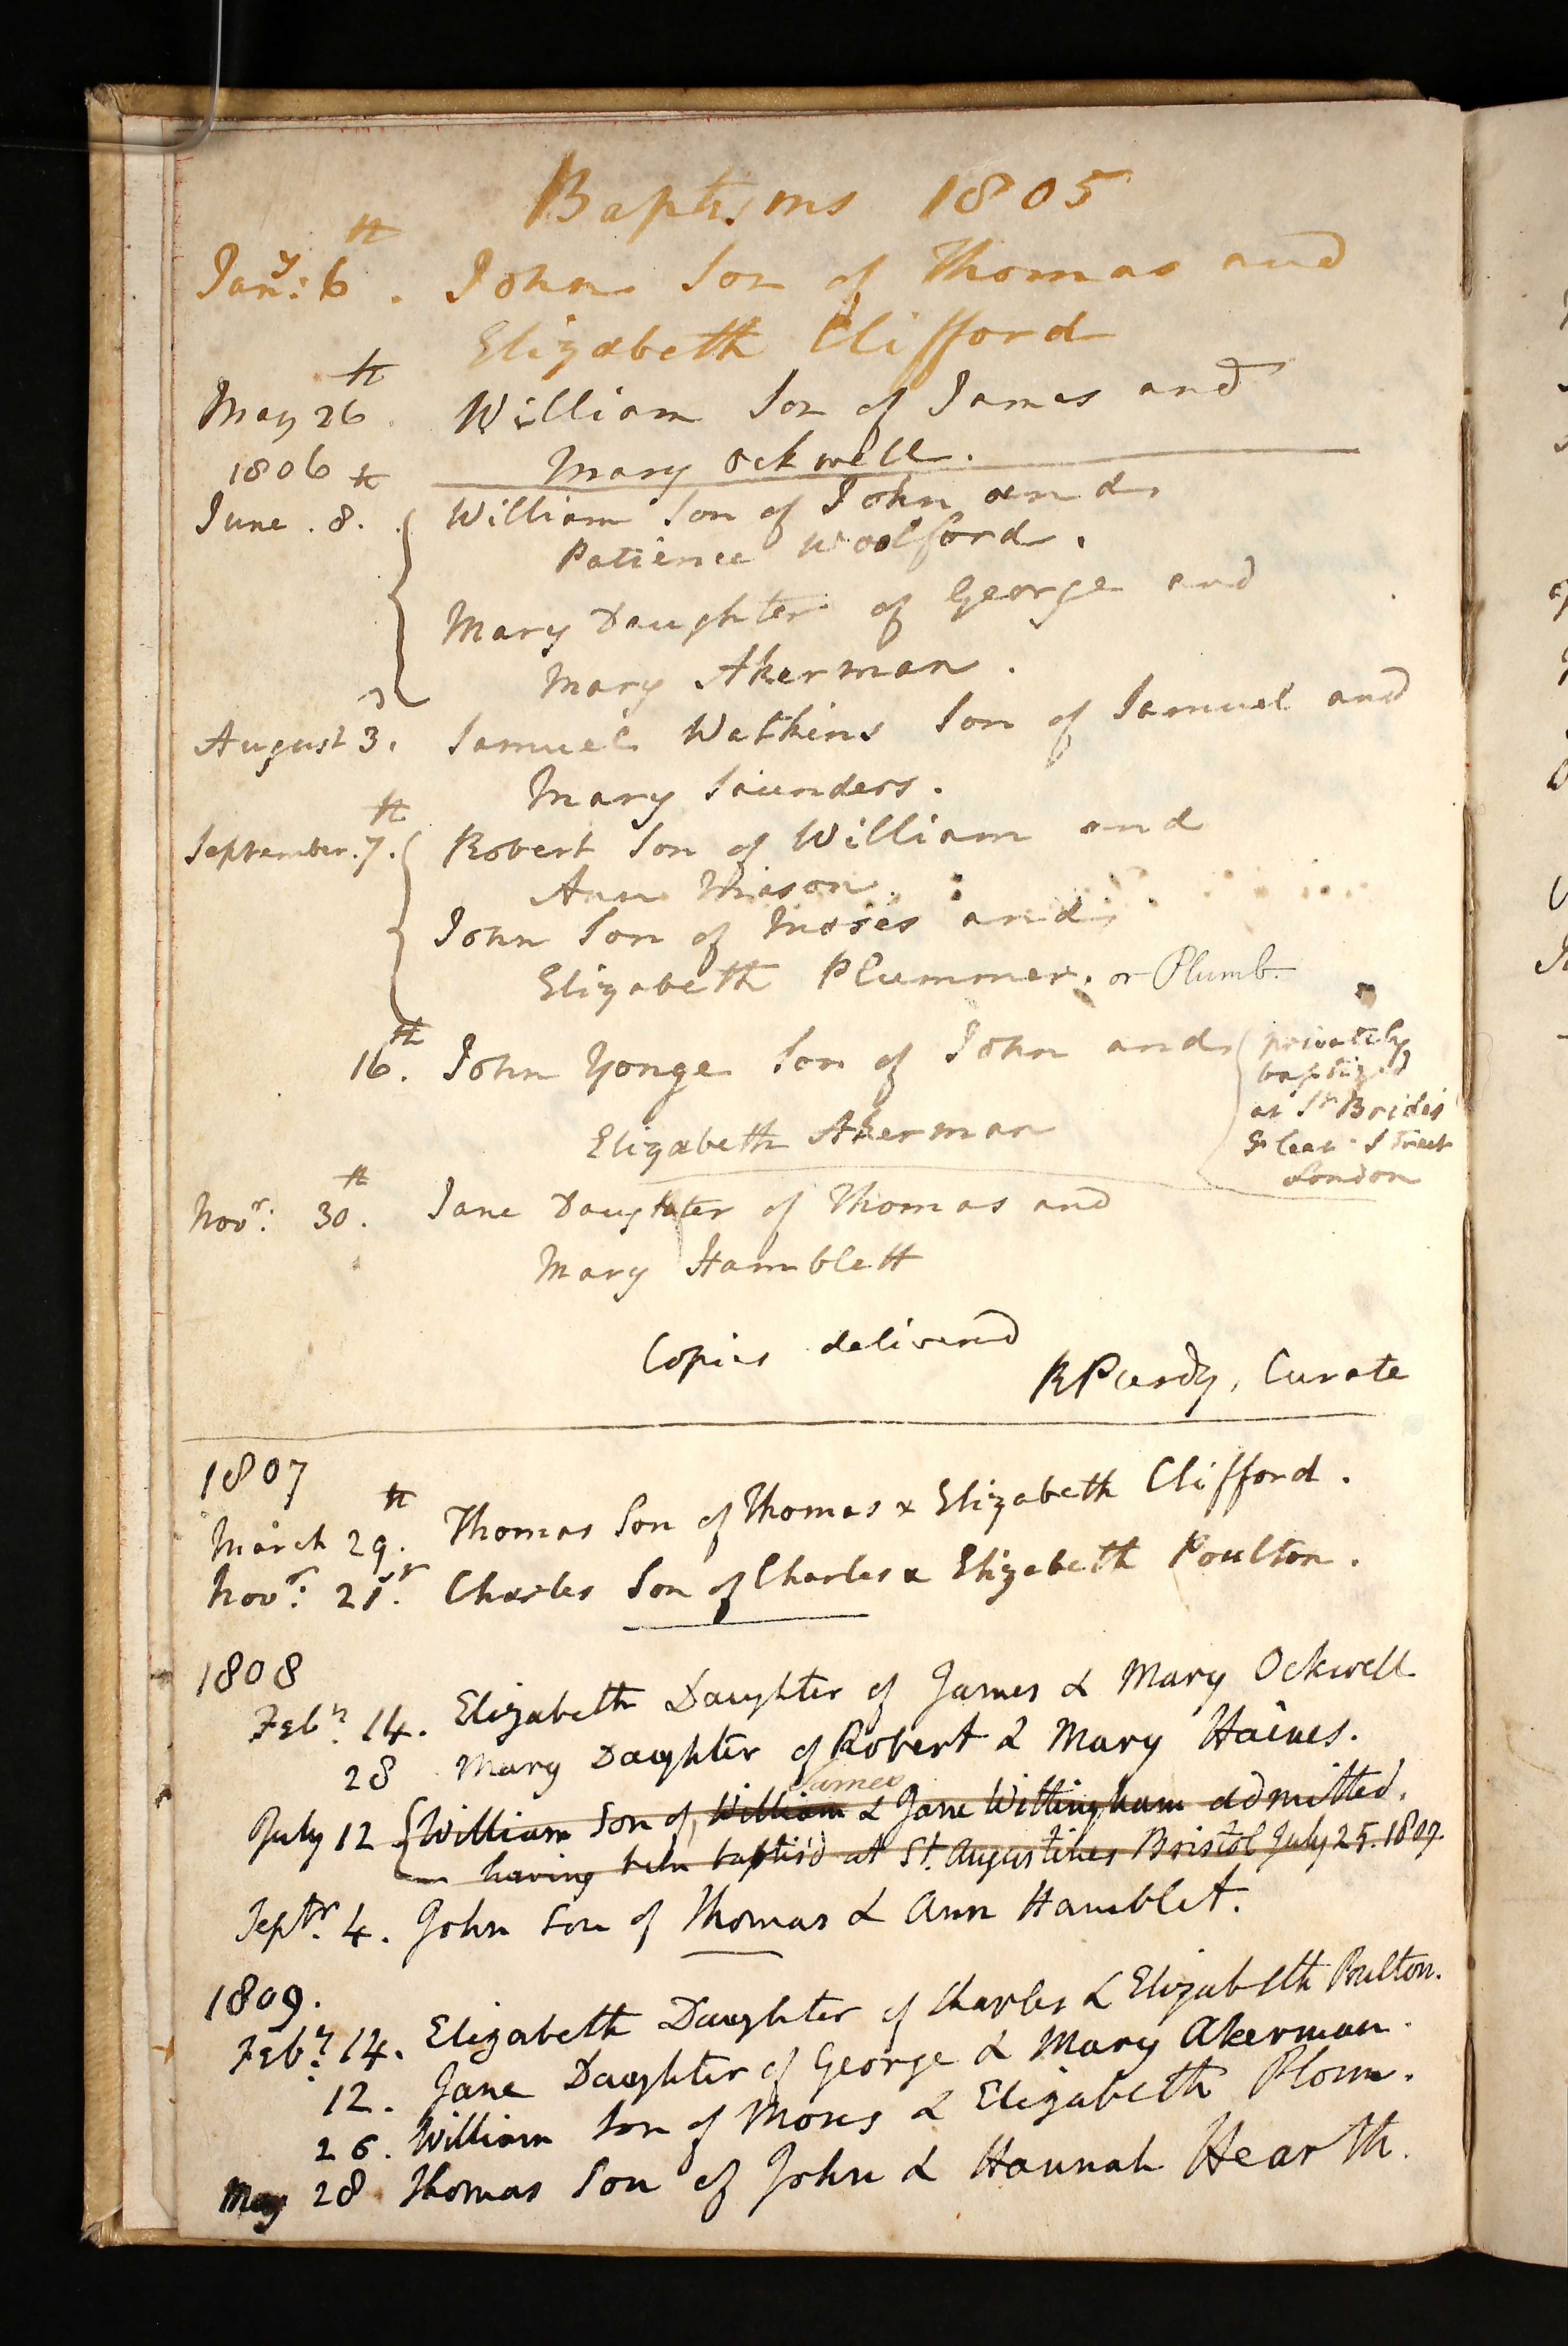 Baptisms 1805
Jany: 6th. John Son of Thomas and
Elizabeth Clifford
May 26th. William Son of James and
1806 Mary Ockwell.
June. 8.th William Son of John and
Patience Woolford.
Mary Daughter of George and
Mary Akerman.
August 3d. Samuel Watkins Son of Samuel and
Mary Saunders.
September. 7.th Robert Son of William and
Ann Mason.
John Son of Moses and
Elizabeth Plummer. or Plumb.
16.th John Yonge Son of John and privately
baptized
at St Brides
Elizabeth Akerman Fleet Street
London
Novr: 30.th Jane Daughter of Thomas and
Mary Hamblett
Copies delivered
R Purdy, Curate
1807
March 29.th Thomas Son of Thomas & Elizabeth Clifford.
Novr: 21st. Charles Son of Charles & Elizabeth Poulton.
1808
Feby. 14. Elizabeth Daughter of James & Mary Ockwell
28 Mary Daughter of Robert & Mary Haines.
James
July 12 William Son of William & Jane Wittingham admitted,
having been baptis'd at St. Augustines Bristol July 25. 1807.
Septr. 4. John Son of Thomas & Ann Hamblet.
1809.
Feby: 14. Elizabeth Daughter of Charles & Elizabeth Poulton.
12. Jane Daughter of George & Mary Akerman.
26. William Son of Moses & Elizabeth Plom.
May 28 Thomas Son of John & Hannah Hearth.